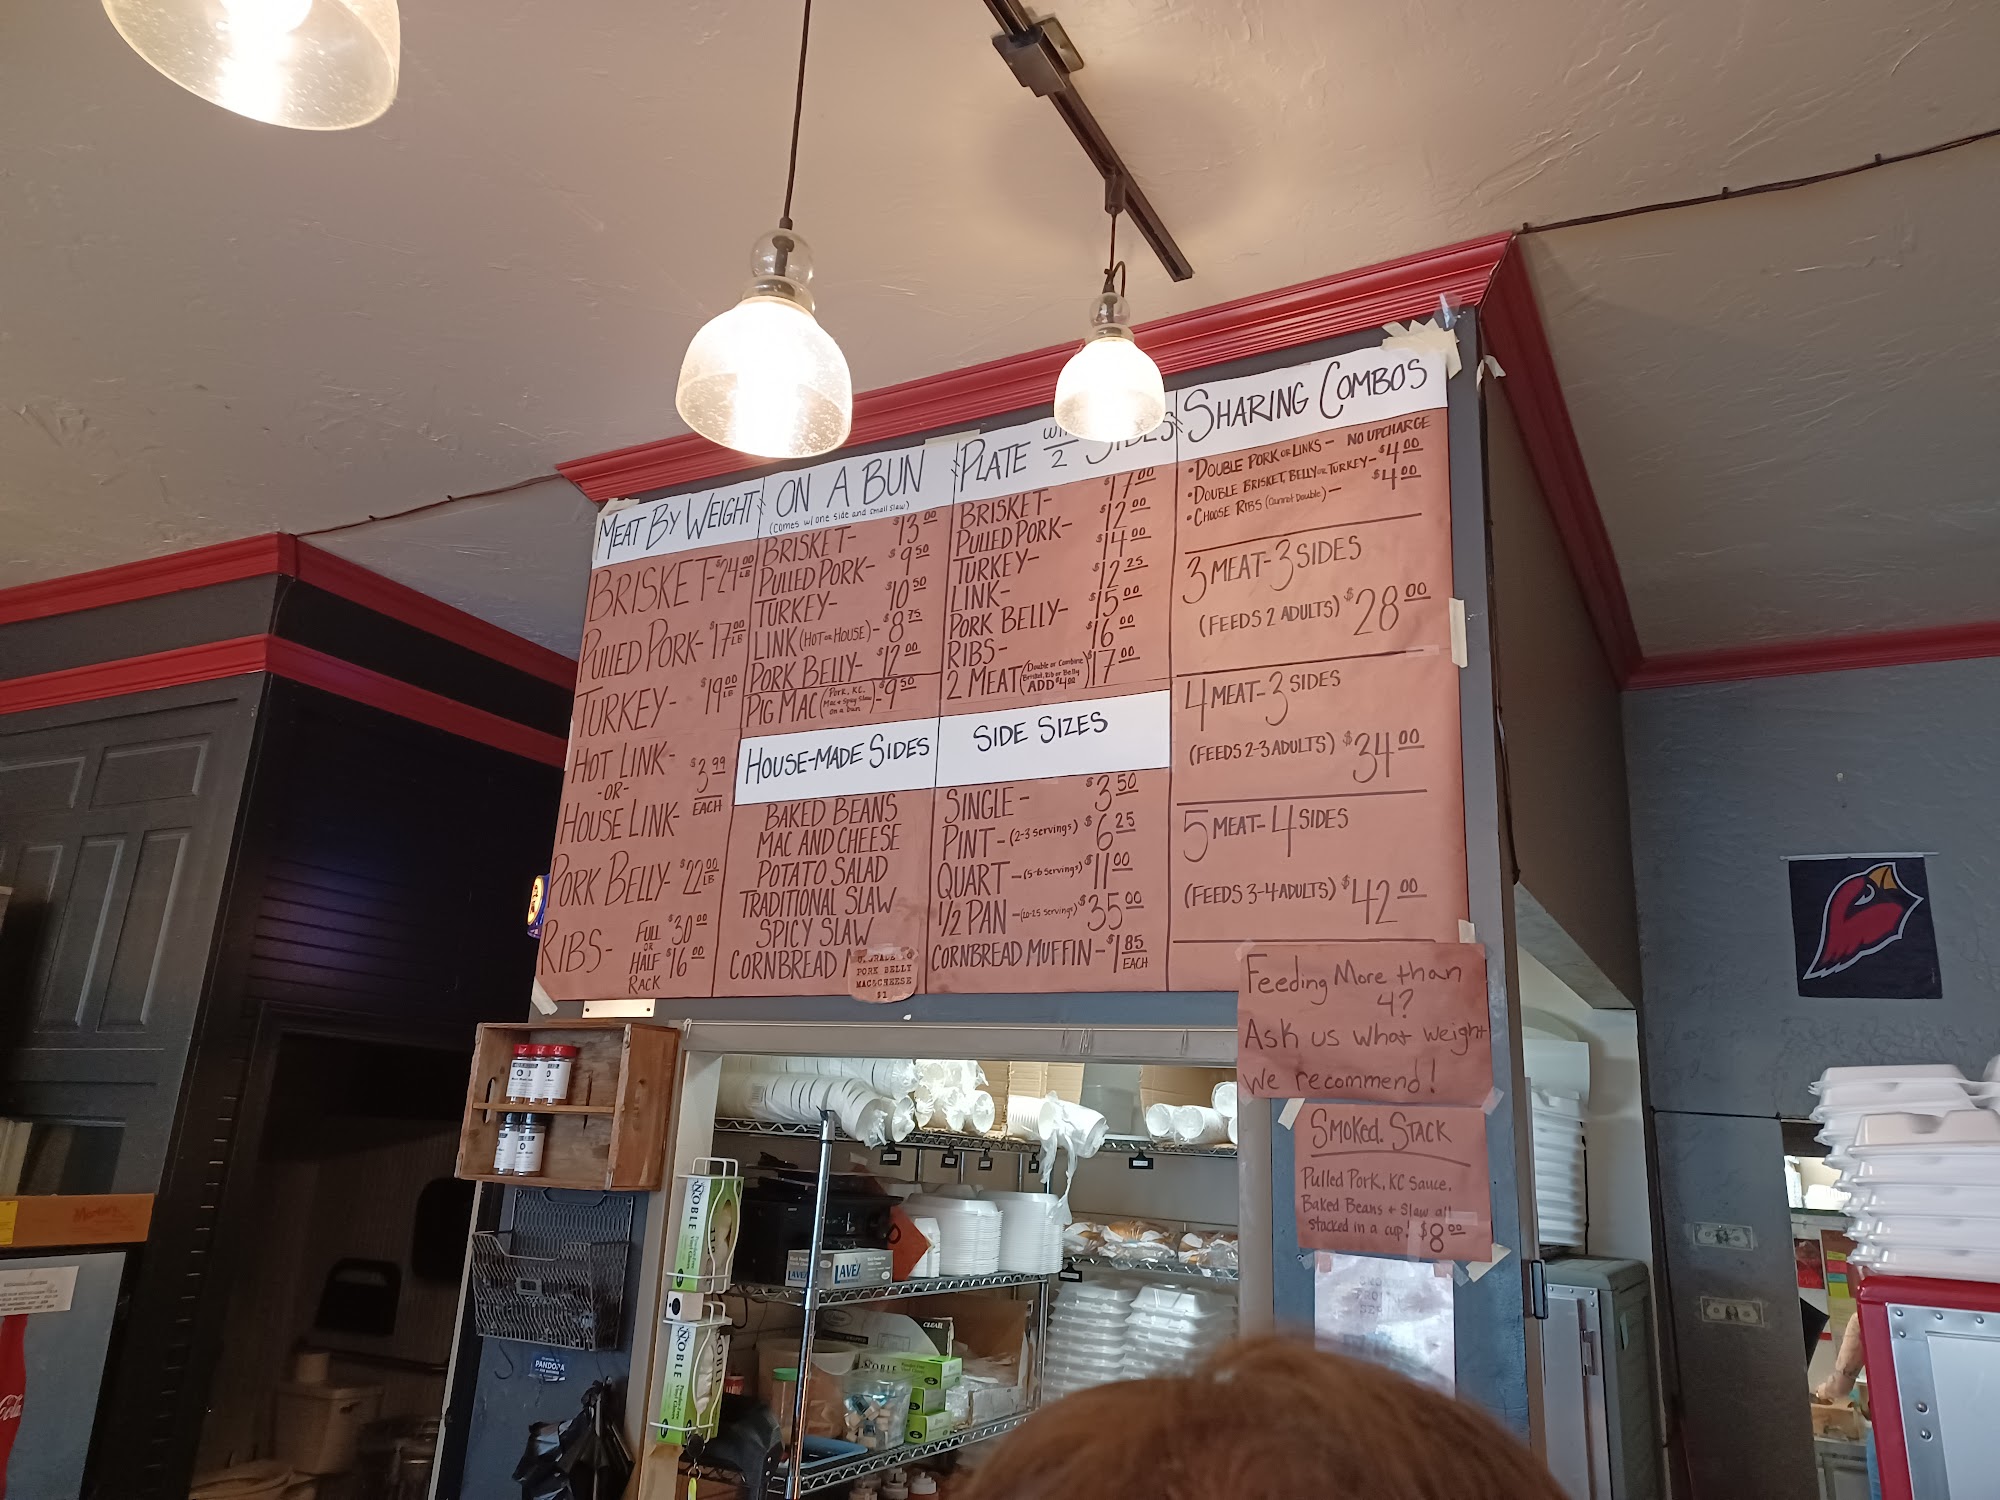 MEAT BY WEIGHT
BRISKET- $24.00 LB
PULLED PORK- $17.00 LB
TURKEY- $19.00 LB
HOT LINK-
-OR-
HOUSE LINK-
$3.99
EACH
PORK BELLY- $22.00 LB
RIBS-
FULL $30.00
OR
HALF $16.00
RACK
ON A BUN
(Comes w/ one side and small slaw)
BRISKET- $13.00
PULLED PORK- $9.50
TURKEY- $10.50
LINK (HOT OR HOUSE)- $8.75
PORK BELLY- $12.00
PIG MAC (Pork, KC, Mac & Spicy Slaw on a bun)- $9.50
HOUSE-MADE SIDES
BAKED BEANS
MAC AND CHEESE
POTATO SALAD
TRADITIONAL SLAW
SPICY SLAW
CORNBREAD
PORK BELLY
MAC&CHEESE
$1
PLATE 2 SIDES
BRISKET- $17.00
PULLED PORK- $12.00
TURKEY- $14.00
LINK- $12.25
PORK BELLY- $15.00
RIBS- $16.00
2 MEAT (Double or Combine Brisket, Rib or Belly ADD $4.00) $17.00
SIDE SIZES
SINGLE- $3.50
PINT-(2-3 servings) $6.25
QUART-(5-6 servings) $11.00
1/2 PAN-(20-25 servings) $35.00
CORNBREAD MUFFIN- $1.85 EACH
SHARING COMBOS
• DOUBLE PORK OR LINKS- NO UPCHARGE
• DOUBLE BRISKET, BELLY OR TURKEY- $4.00
• CHOOSE RIBS (Cannot Double)- $4.00
3 MEAT-3 SIDES
(FEEDS 2 ADULTS) $28.00
4 MEAT-3 SIDES
(FEEDS 2-3 ADULTS) $34.00
5 MEAT-4 SIDES
(FEEDS 3-4 ADULTS) $42.00
Feeding More than
4?
Ask us what weight
we recommend!
SMOKED. STACK
Pulled Pork, KC Sauce,
Baked Beans + Slaw all
stacked in a cup! $8.00
NOBLE
NOBLE
LAVEX
CLEAR
NOBLE
PANDORA
Cola